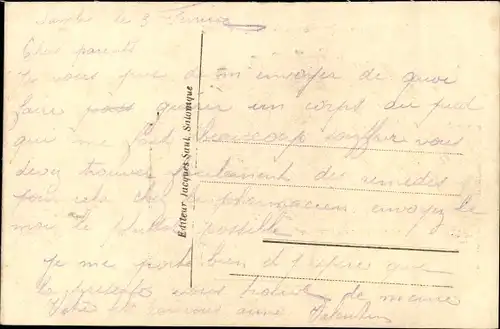 le 3
Chers parents
Je vous prie de m envoyer de quoi
faire guérir un cors du pied
qui me fait beaucoup souffrir vous
devez trouver facilement des remèdes
pour cela chez le pharmacien envoyez le
moi le plus possible
je me porte bien et j'espère que
la présente vous trouve de même
Votre fils qui vous aime Valentin
Editeur Jacques Saul, Salonique